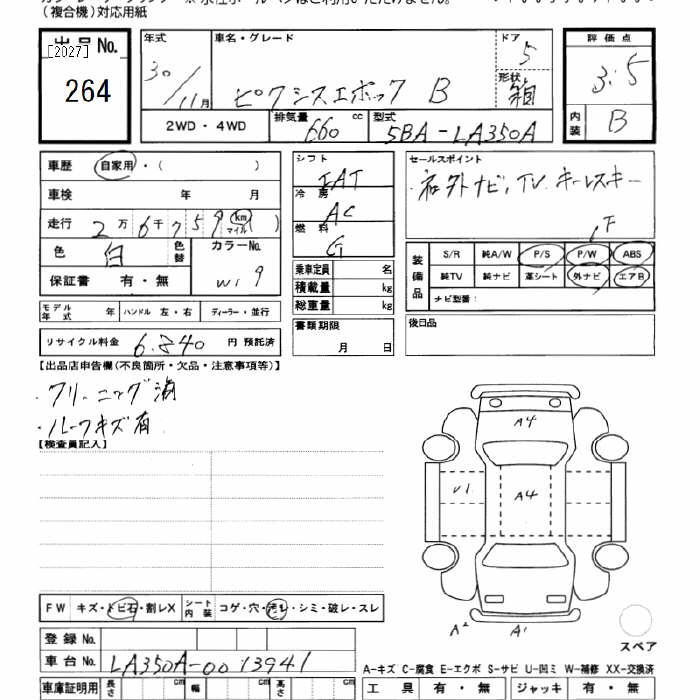 (複合機)対応用紙
出品No. 年式 車名・グレード ドア 5 評価点
[2027]
264 30/11月 ピクシスエポック B 形状 箱 3.5
2WD・4WD 排気量 660 cc 型式 5BA-LA350A 内装 B
車歴 自家用・( ) シフト IAT セールスポイント
車検 年 月 冷房 AC 社外ナビ、TV キーレスキー
走行 2万6千759 km マイル ( ) 燃料 G F
色 白 色替 カラーNo. W19 装備品 S/R 純A/W P/S P/W ABS
保証書 有・無 乗車定員 名 純TV 純ナビ 革シート 外ナビ エアB
積載量 kg ナビ型番:
モデル年式 年 ハンドル 左・右 ディーラー・並行 総重量 kg
リサイクル料金 6,840 円 預託済 書類期限 月 日 後日品
【出品店申告欄(不良箇所・欠品・注意事項等)】
・クリーニング済
・ルーフキズ有
【検査員記入】
A4
U1 A4
FW キズ・トビ石・割レX シート内装 コゲ・穴・汚レ・シミ・破レ・スレ
A2 A1
登録No. スペア
車台No. LA350A-0013941
A-キズ C-腐食 E-エクボ S-サビ U-凹ミ W-補修 XX-交換済
車庫証明用 長さ cm 幅 cm 高さ cm 工具 有・無 ジャッキ 有・無